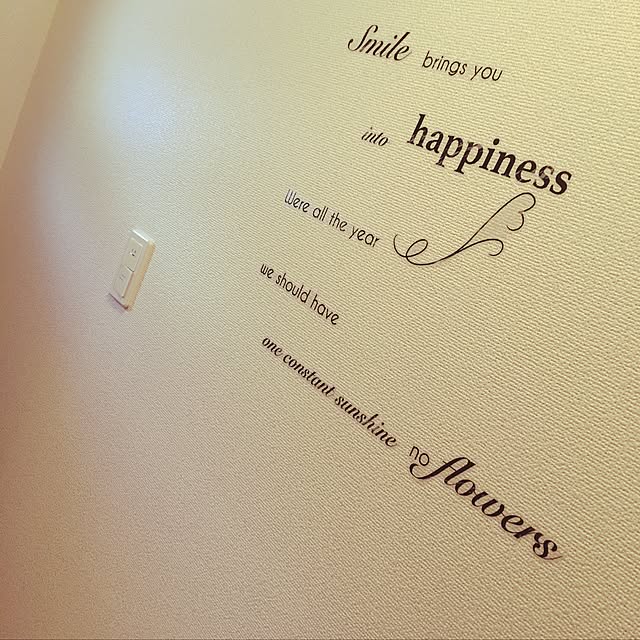 Smile brings you
into happiness
Were all the year
we should have
one constant sunshine no flowers